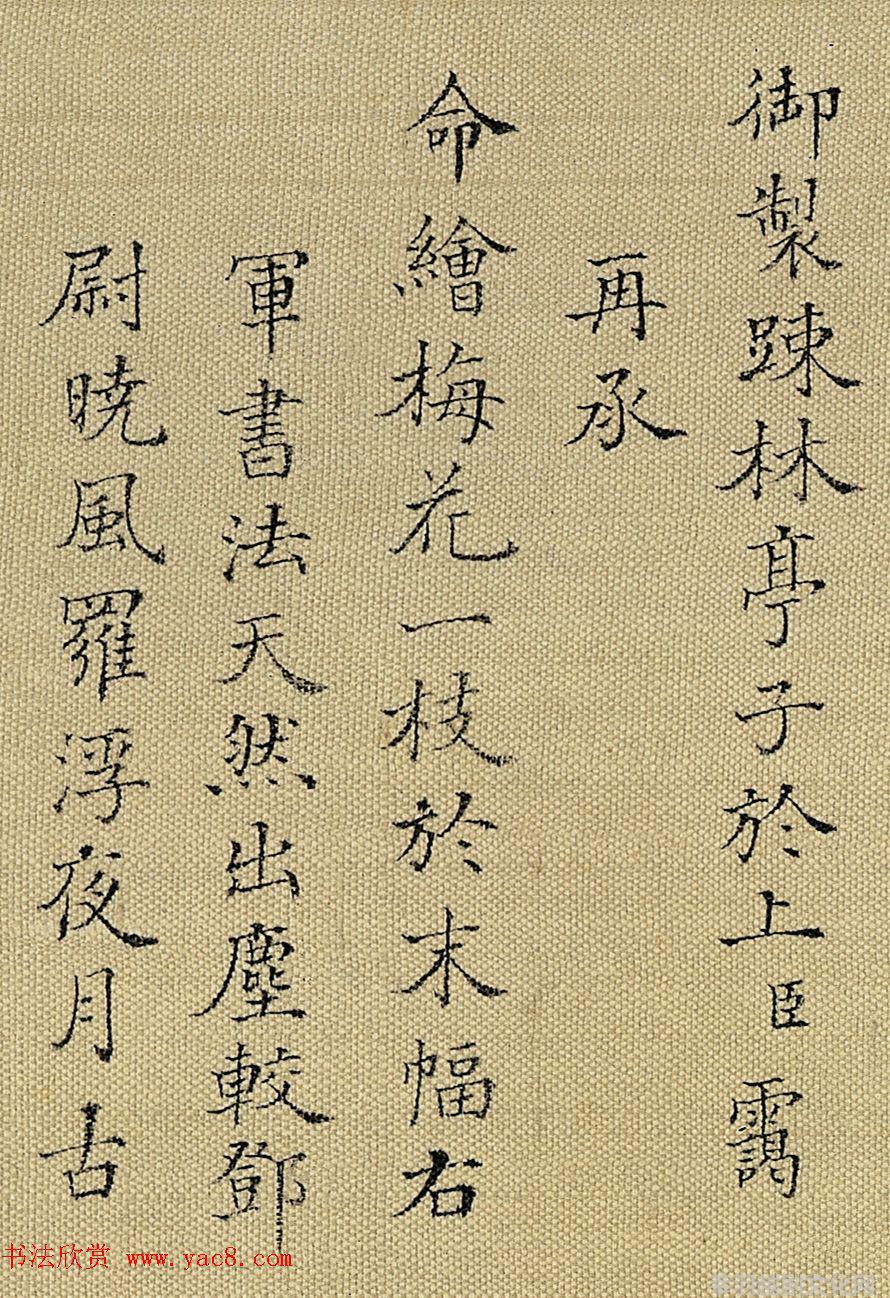 御製踈林亭子於上臣靄
再承
命繪梅花一枝於末幅右
軍書法天然出塵較鄧
尉曉風羅浮夜月古
书法欣赏 www.yac8.com